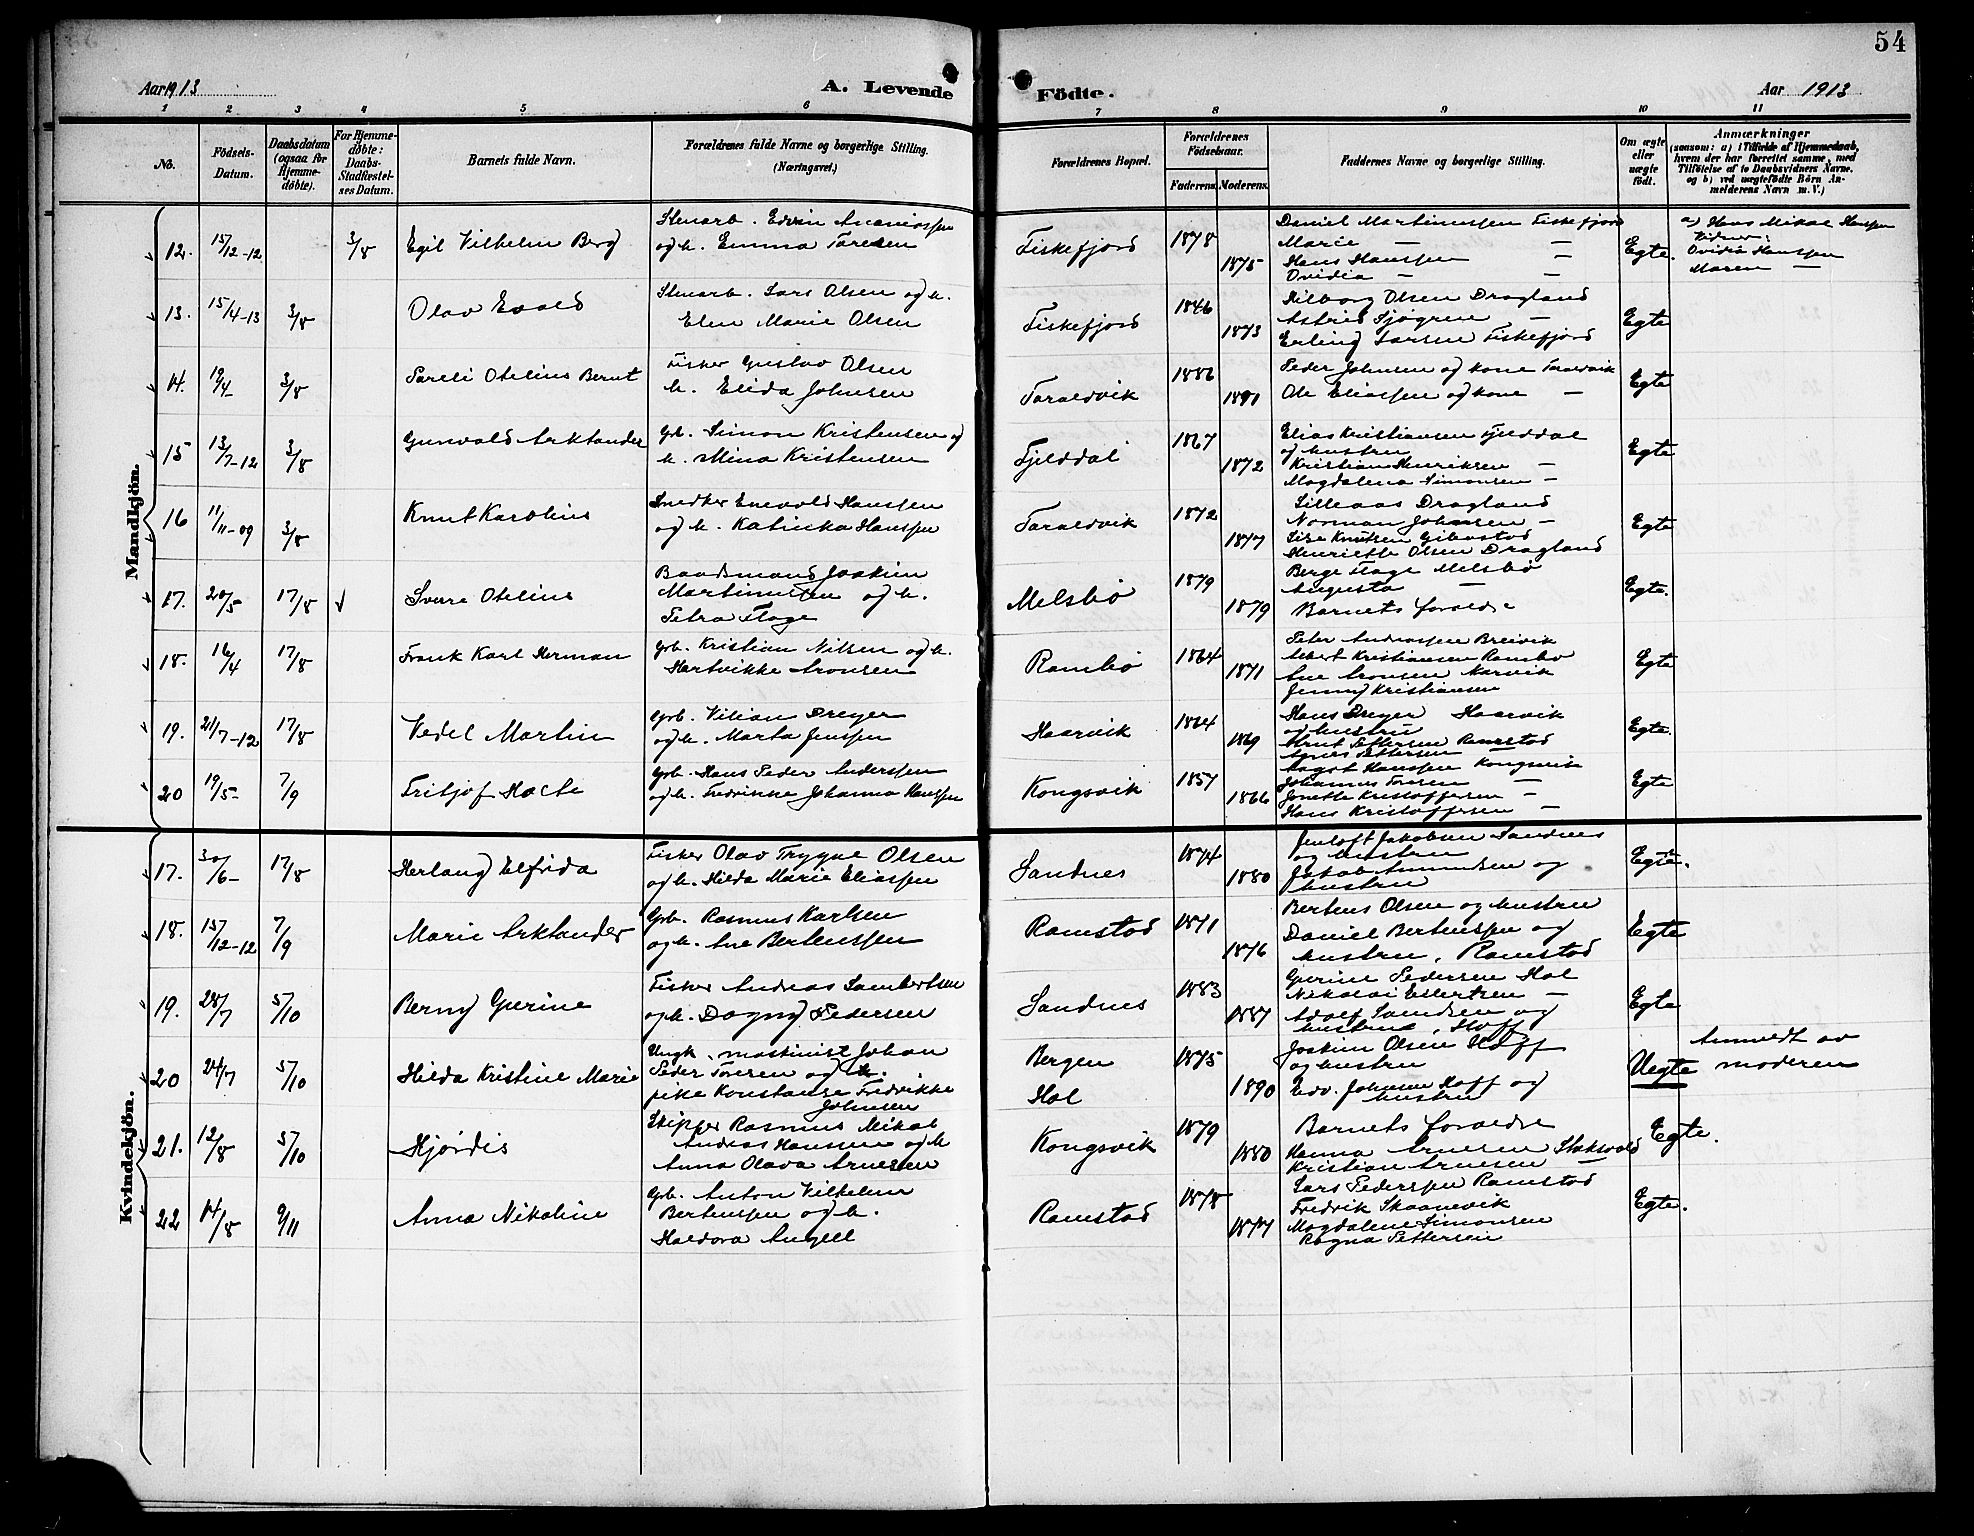 54
Aar 1913
A. Levende
Födte.
Aar 1913
1 2 3 4 5 6 7 8 9 10 11
No.
Födsels-
Datum.
Daabsdatum
(ogsaa for
Hjemme-
döbte).
For Hjemme-
döbte:
Daabs-
Stadfæstel-
ses Datum.
Barnets fulde Navn.
Forældrenes fulde Navne og borgerlige Stilling.
(Næringsvei.)
Forældrenes Bopæl.
Forældrenes
Födselsaar.
Faderens. Moderens.
Faddernes Navne og borgerlige Stilling.
Om ægte
eller
uægte
födt.
Anmærkninger
(saasom: a) i Tilfælde af Hjemmedaab,
hvem der har forrettet samme, med
Tilföielse af to Daabsvidners Navne,
og b) ved uægtefödte Börn An-
melderens Navn m. V.)
Mandkjön.
12. 15/12-12 3/8 Egil Vilhelm Berg
Stenarb. Edvin Ananiassen
og h. Emma Toresen
Fiskefjord 1878 1875
Daniel Martinussen Fiskefjord
Marie — —
Hans Hanssen —
Ovidia — —
Egte.
a) Hans Mikal Hanssen
Vidner:
Ovidia Hanssen
Maren —
13. 15/4-13 3/8 Olav Evald
Stenarb. Lars Olsen og h.
Elen Marie Olsen
Fiskefjord 1846 1873
Hilborg Olsen Dragland
Astrid Sjøgren —
Erling Larsen Fiskefjord
Egte
14. 19/4- 3/8 Sareli Otelius Bernt
Fisker Gustav Olsen
h. Elida Johnsen
Taraldvik 1886 1891
Peder Johnsen og kone Taraldvik
Ole Eliassen og kone —
Egte
15 13/7-12 3/8 Gunvald Arktander
Grb. Simon Kristensen og
h. Mina Kristensen
Fjelddal 1867 1872
Elias Kristiansen Fjelddal
og hustru
Kristian Henriksen —
Magdalena Simonsen —
Egte
16 11/11-09 3/8 Knut Karolius
Snedker Enevold Hanssen
og h. Katinka Hanssen
Taraldvik 1872 1877
Lilleaas Dragland
Norman Johansen —
Lise Knutsen Gibostad
Henriette Olsen Dragland
Egte
17. 20/5 17/8 Sverre Otelius
Baadsmand Joakim
Martinussen og h.
Petra Hage
Melsbö 1879 1879
Berge Hage Melsbö
Augusta —
Barnets foreldre
Egte.
18. 16/4 17/8 Frank Karl Herman
Grb. Kristian Nilsen og h.
Hartvikke Aronsen
Rambö 1864 1871
Peter Andreassen Breivik
Albert Kristiansen Rambö
Ane Aronsen Narvik
Jenny Kristiansen
Egte
19. 21/7-12 17/8 Vedel Martin
Grb. Vilian Dreyer
og h. Marta Jenssen
Haarvik 1864 1869
Hans Dreyer Haarvik
og hustru
Knut Pettersen Ramstad
Agnes Pettersen
Egte.
20 19/5- 7/9 Fritjof Hacte
Grb. Hans Peder Anderssen
og h. Fredrikke Johanna Hanssen
Kongsvik 1857 1866
Aagot Hanssen Kongsvik
Johannes Toresen —
Jonette Kristoffersen —
Hans Kristoffersen —
Egte
Kvindekjön.
17. 30/6- 17/8 Herlaug Elfrida
Fisker Olav Trygve Olsen
og h. Hilda Marie Eliassen
Sandnes 1874 1880
Jentoft Jakobsen Sandnes
og hustru
Jakob Amundsen og
hustru
Egte.
18. 15/12-12 7/9 Marie Arktander
Grb. Rasmus Karlsen
og h. Ane Bertenssen
Ramstad 1871 1876
Bertens Olsen og hustru
Daniel Bertenssen og
hustru, Ramstad
Egte
19. 28/7 5/10 Berny Gjerine
Fisker Andreas Lambertsen
og h. Dagny Pedersen
Sandnes 1883 1887
Gjerine Pedersen Hol
Nikolai Eilertsen —
Adolf Lamdsen og
hustru, Hoff
Egte
20 24/7 5/10 Hilda Kristine Marie
Ungk. maskinist Johan
Peder Toresen og
pike Konstanse Fredrikke
Johnsen
Bergen
Hol
1875 1890
Joakim Olsen Hoff
og hustru
Edv. Johnsen Hoff og
hustru
Uegte
Anmeldt av
moderen
21. 12/8 5/10 Hjördis
Skipper Rasmus Mikal
Andreas Hanssen og h
Anna Olava Arnesen
Kongsvik 1879 1880
Barnets foreldre
Hanna Arnesen Stoksvold
Kristian Arnesen —
Egte.
22 14/8 9/11 Anna Nikoline
Grb. Anton Vilhelm
Bertenssen og h.
Haldora Angell
Ramstad 1878 1877
Lars Pederssen Ramstad
Fredrik Skaanevik
Magdalene Simonsen
Ragna Pettersen
Egte.